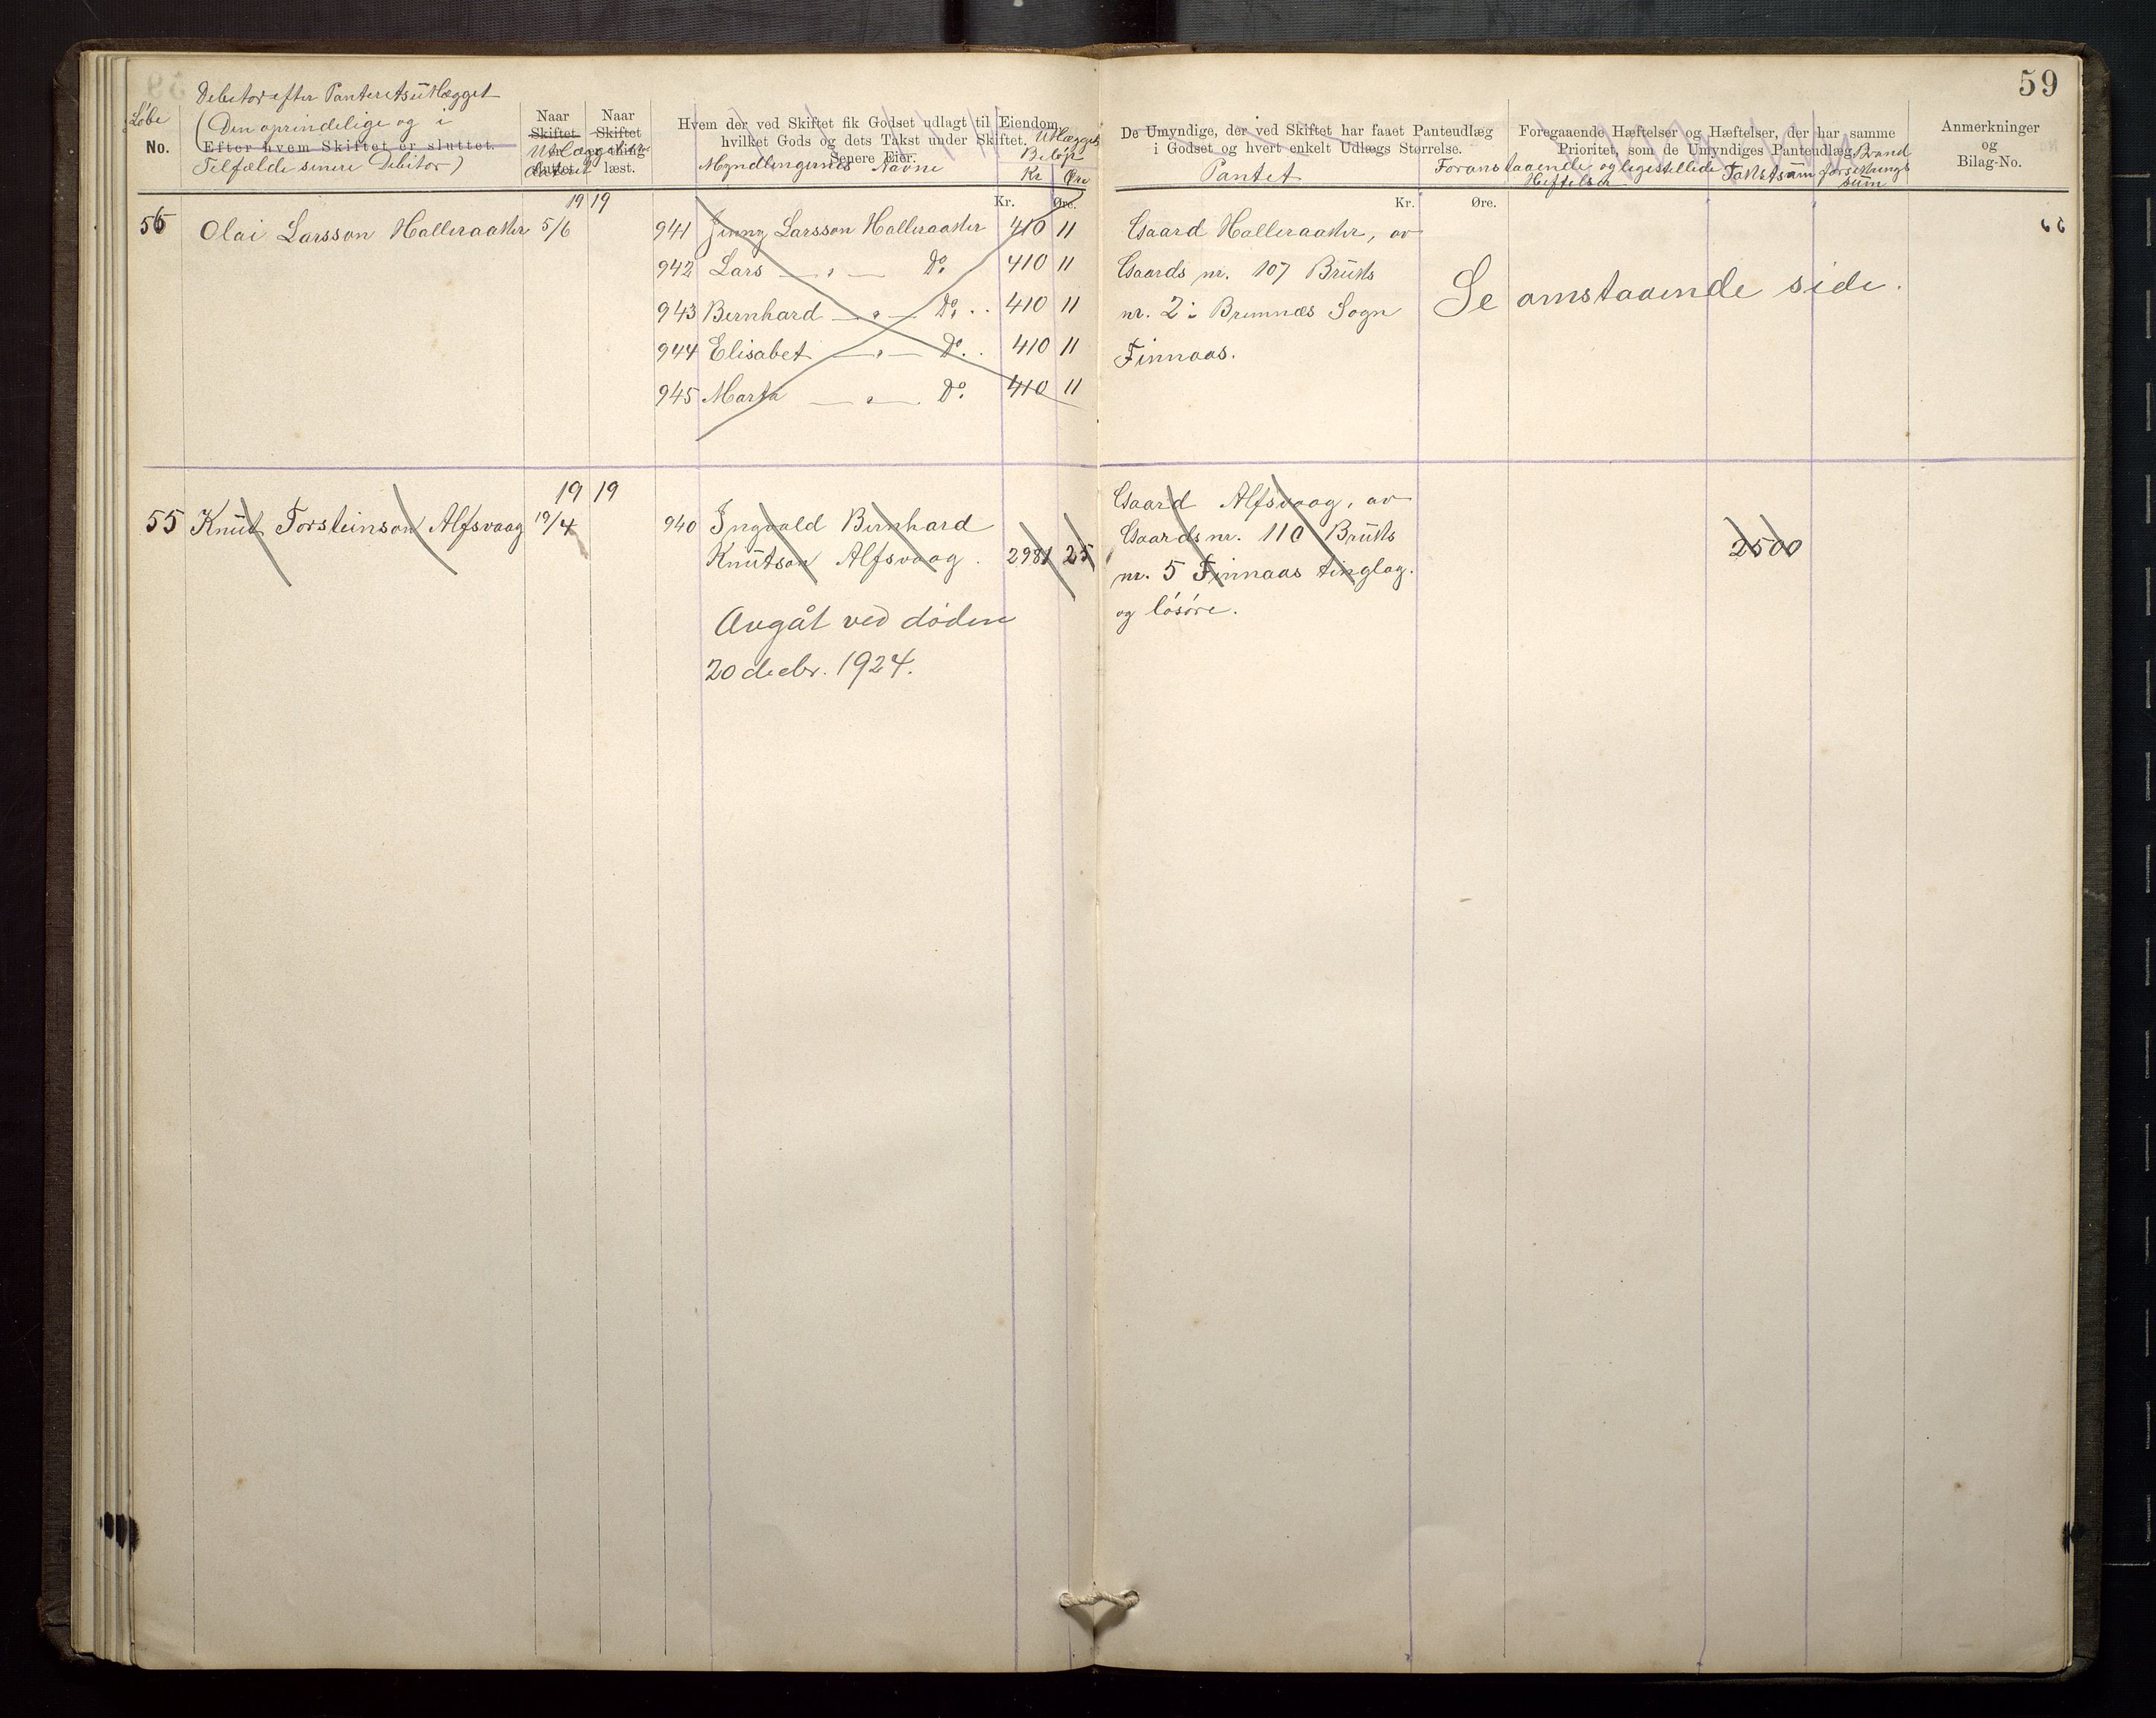 59
Debitor efter Panteretsutlægget
(Den oprindelige og i
Efter hvem Skiftet er sluttet.
Tilfælde senere Debitor)
Løbe
No.
Naar
Skiftet
er
sluttet.
Naar
Skiftet
er thing-
læst.
Hvem der ved Skiftet fik Godset udlagt til Eiendom,
hvilket Gods og dets Takst under Skiftet.
Senere Eier.
Myndlingernes Navne
Utlægget
Beløp
Kr Øre
De Umyndige, der ved Skiftet har faaet Panteudlæg
i Godset og hvert enkelt Udlægs Størrelse.
Pantet
Foregaaende Hæftelser og Hæftelser, der har samme
Prioritet, som de Umyndiges Panteudlæg.
Foranstaaende og ligestillede
Heftelser
Takstsum
Brand
forsikrings
sum
Anmerkninger
og
Bilag-No.
Kr. Øre.
Kr. Øre.
19 19
56 Olai Larsson Halleraaker 5/6
941 Jenny Larsson Halleraaker 410 11
942 Lars — " — Do. 410 11
943 Bernhard — " — Do. . . 410 11
944 Elisabet — " — Do. . 410 11
945 Marta — " — Do. 410 11
Gaard Halleraaker, av
Gaards nr. 107 Bruks
nr. 2 i Bremnæs Sogn
Finnaas.
Se omstaaende side.
19 19
55 Knut Torsteinson Alfsvaag 19/4
940 Ingvald Bernhard
Knutson Alfsvaag . 2981 25
Avgåt ved døden
20 decbr. 1924.
Gaard Alfsvaag, av
Gaards nr. 110 Bruks
nr. 5 Finnaas tinglag.
og løsøre.
2500